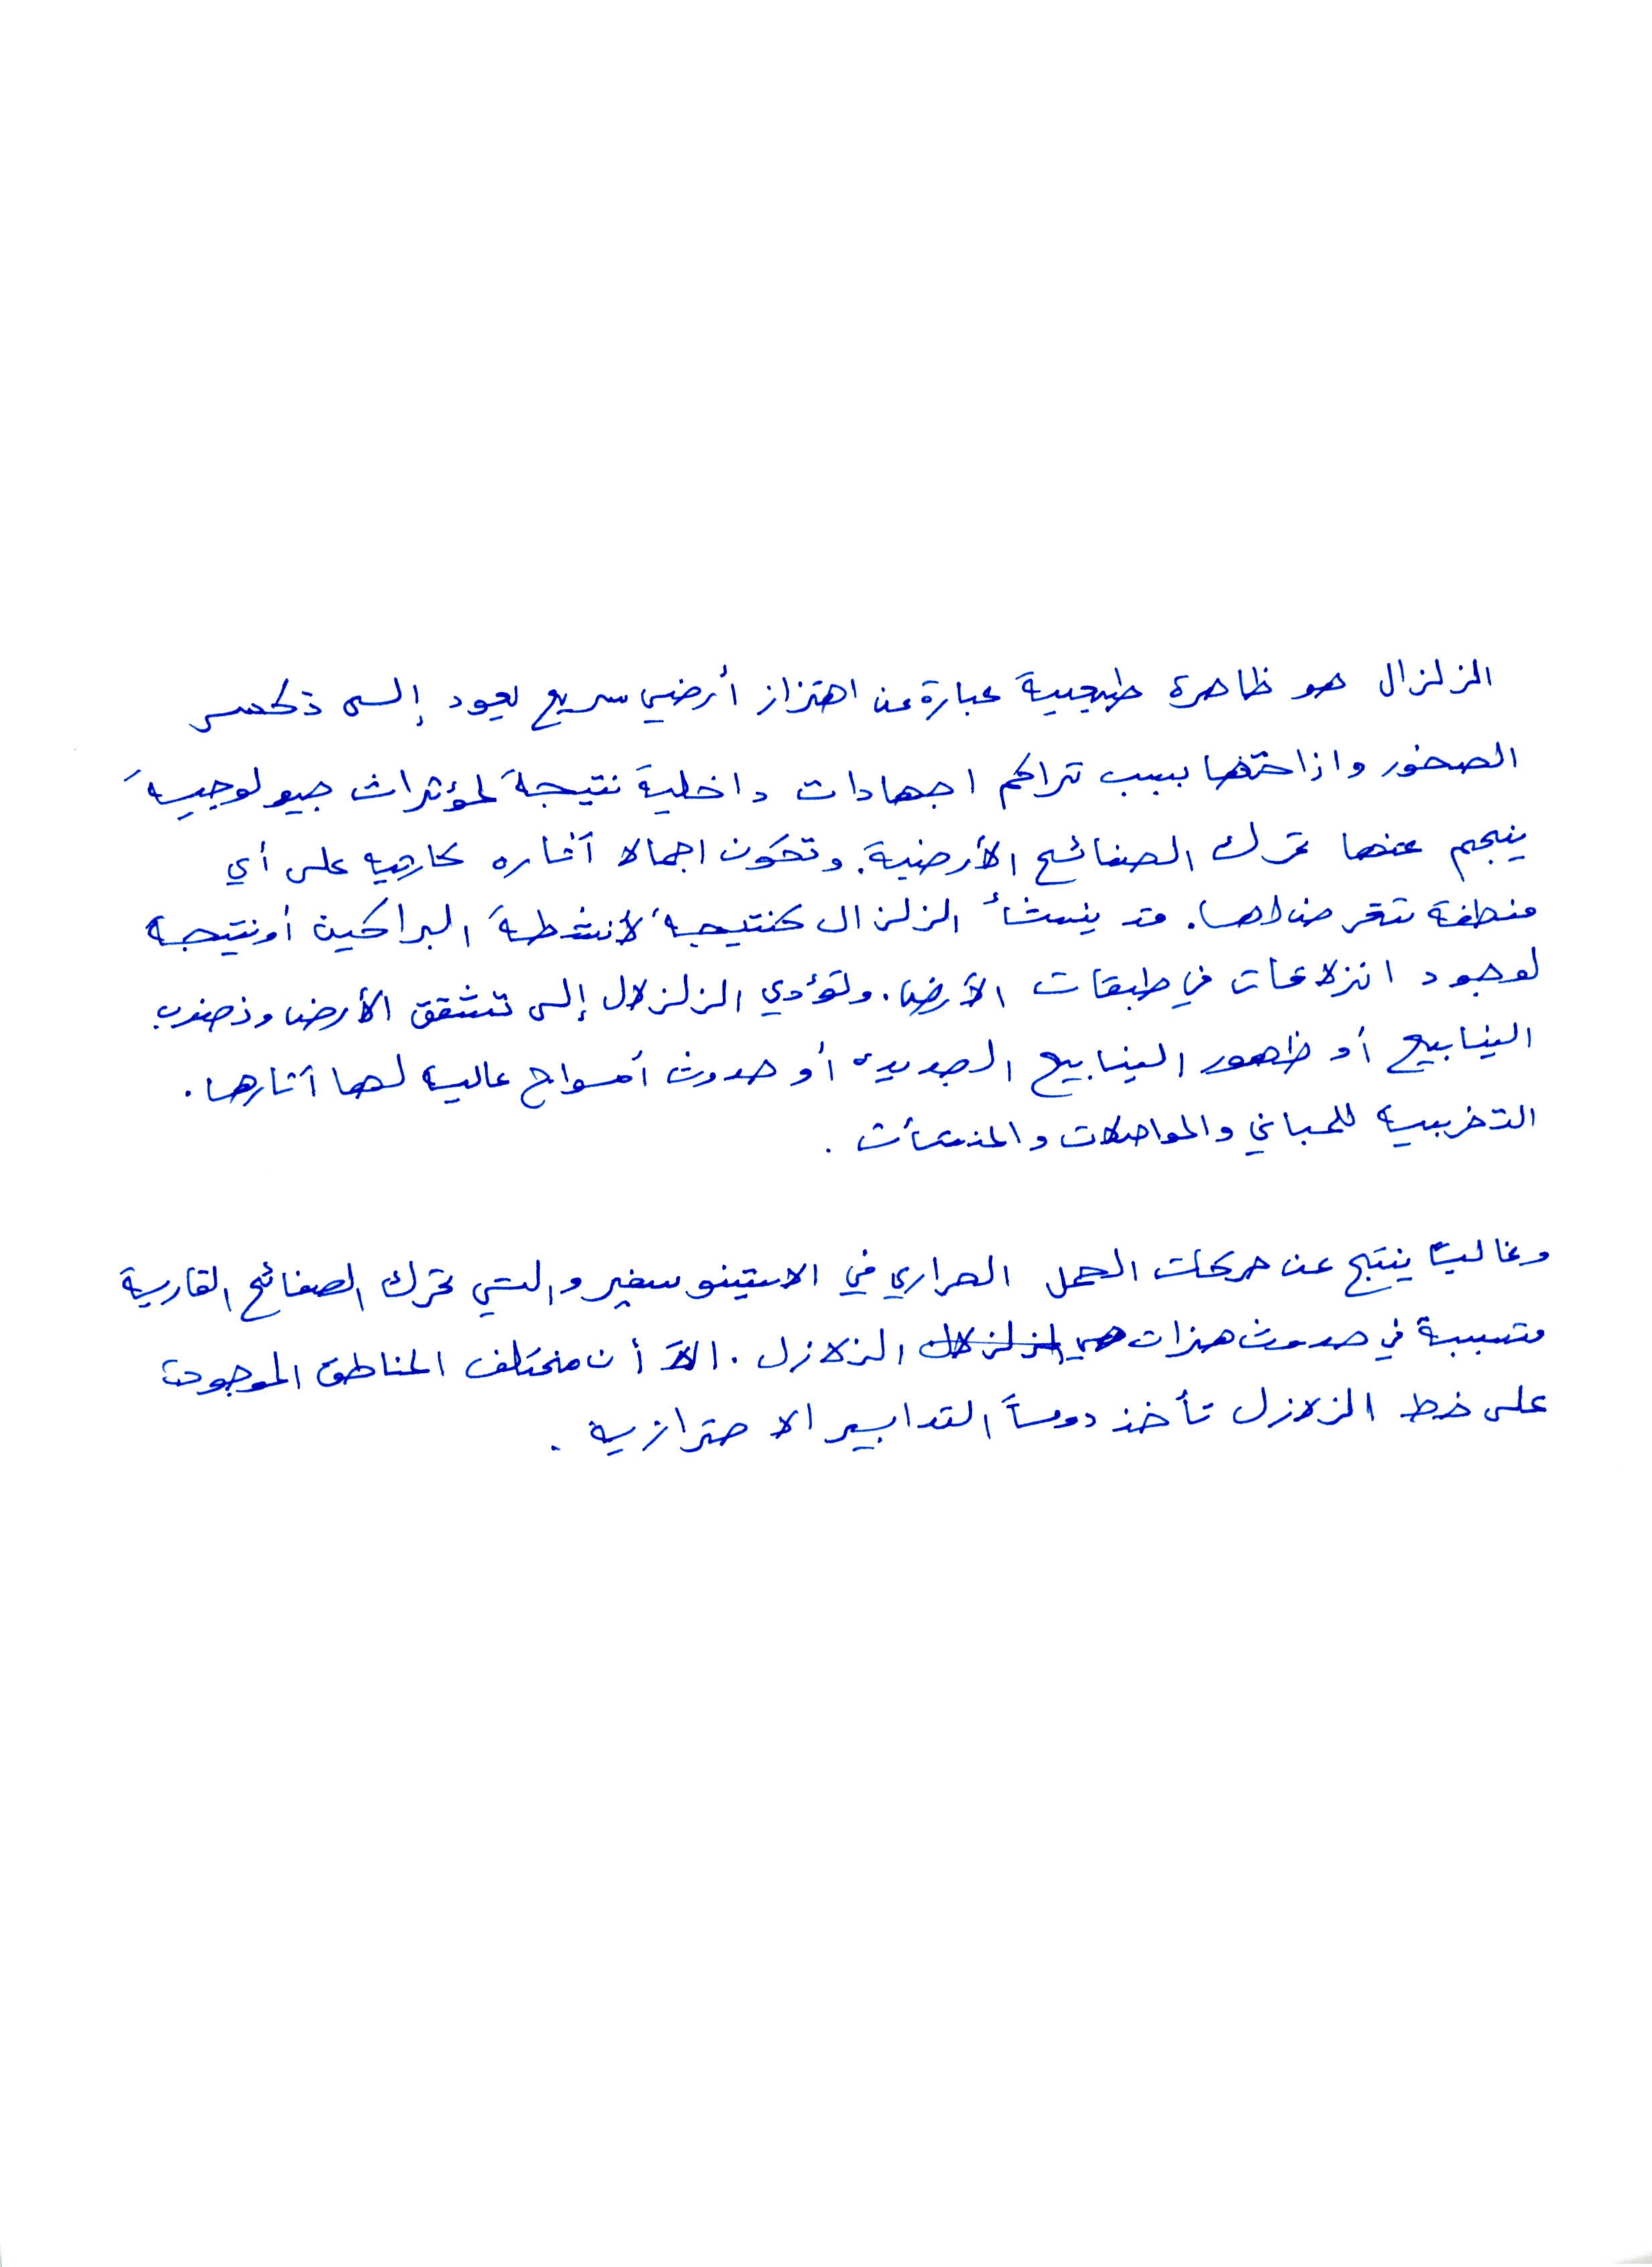 الزلزال هو ظاهرة طبيعية عبارة عن اهتزاز أرضي سريع يعود إلى تكسر
الصخور وازاحتها بسبب تراكم اجهادات داخلية نتيجة لمؤثرات جيولوجية
ينجم عنها تحرك الصفائح الأرضية. وتكون اجمالا آثاره كارثيه على أي
منطقة تتعرض لها. قد ينشأ الزلزال كنتيجة لأنشطة البراكين أو نتيجه
لوجود انزلاقات في طبقات الأرض. وتؤدي الزلزلال إلى تشقق الأرض ونضوب
الينابيع أو ظهور الينابيع الجديده أو حدوث أمواج عاليه لها آثارها.
التخريبيه للمباني والمواصلات والمنشأت .
وغالبًا ينتج عن حركات الحمل الحراري في الاستينوسفير والتي تحرك الصفائح القارية
متسببة في حدوث هزات هي الزلزلال الزلازل . الا أن مختلف المناطق الموجودة
على خط الزلازل تأخذ دوماً التدابير الاحترازيه .